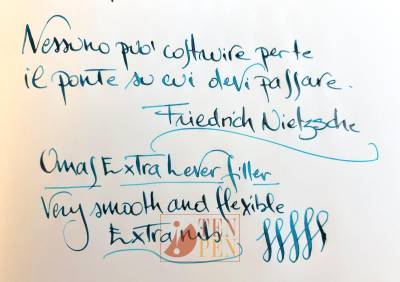 Nessuno può costruire per te
il ponte su cui devi passare.
Friedrich Nietzsche
Omas Extra Lever filler
Very smooth and flexible
Extra nib
TEN
PEN